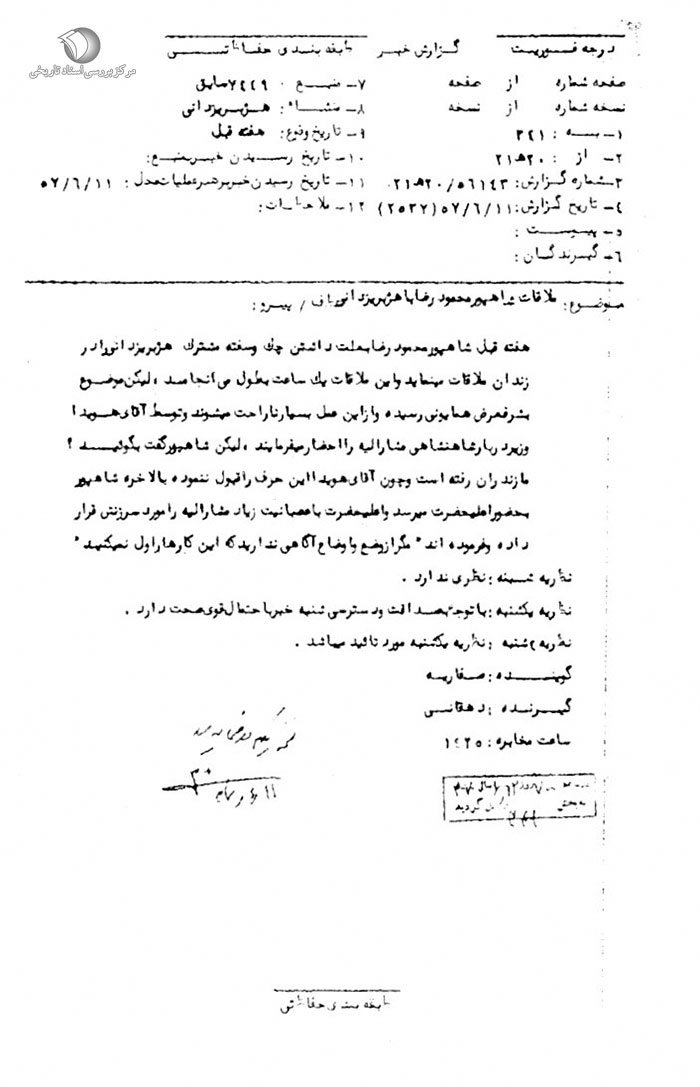 مرکز بررسی اسناد تاریخی
درجه فوریت گزارش خبر طبقه بندی حفاظتی
صفحه شماره از صفحه ۷ـ منبع : ۷۴۴۹ سابق
نسخه شماره از نسخه ۸ـ منشاء : هژبریزدانی
۱ـ به : ۳۴۱ ۹ـ تاریخ وقوع : هفته قبل
۲ـ از : ۲۰ﻫ۲۱ ۱۰ـ تاریخ رسیدن خبر بمنبع :
۳ـ شماره گزارش : ۲۱ﻫ۲۰/۵۶۱۴۳ ۱۱ـ تاریخ رسیدن خبر برهبر عملیات محل : ۵۷/۶/۱۱
۴ـ تاریخ گزارش : ۵۷/۶/۱۱ (۲۵۳۷) ۱۲ـ ملاحظات :
۵ـ پیوست :
۶ـ گیرندگان :
موضوع : ملاقات شاهپور محمود رضا با هژبریزدانی / پیرو :
هفته قبل شاهپور محمود رضا بعلت داشتن چک وسفته مشترک هژبریزدانی را در
زندان ملاقات مینماید واین ملاقات یک ساعت بطول می انجامد ، لیکن موضوع
بشرفعرض همایونی رسیده وازاین عمل بسیار ناراحت میشوند وتوسط آقای هویدا
وزیر دربار شاهنشاهی مشارالیه را احضار میفرمایند ، لیکن شاهپور گفت بگوئید ؟
مازندران رفته است وچون آقای هویدا این حرف را قبول ننموده بالاخره شاهپور
بحضور اعلیحضرت میرسد واعلیحضرت با عصبانیت زیاد مشارالیه را مورد سرزنش قرار
داده وفرموده اند " مگر از وضع واوضاع آگاهی ندارید که این کارها را ول نمیکنید "
نظریه شنبه : نظری ندارد .
نظریه یکشنبه : با توجه بصداقت ودسترسی شنبه خبر با احتمال قوی صحت دارد .
نظریه ۲شنبه : نظریه یکشنبه مورد تائید میباشد .
گوینده : صفاریه
گیرنده : دهقانی
ساعت مخابره : ۱۴۲۵
به بخش گردید
طبقه بندی حفاظتی